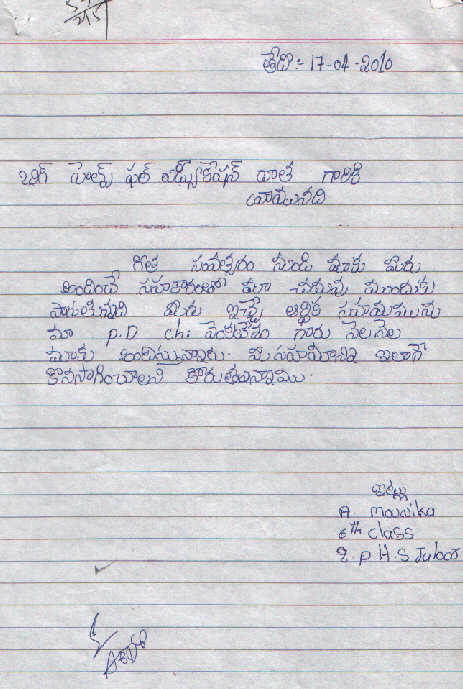 తేది:- 17-04-2010
బిగ్ హెల్ప్ ఫర్ ఎడ్యుకేషన్ దాత గారికి
వ్రాయునది
గత సంవత్సరం నుండి మాకు మీరు
అందించే సహకారంతో మా చదువు ముందుకు
సాగుతున్నది మీరు ఇచ్చే ఆర్థిక సహాయమును
మా P.D ch: వెంకటేశం గారు నెలనెల
మాకు అందిస్తున్నారు. మీ సహాయాన్ని ఇలాగే
కొనసాగించాలని కోరుతున్నాము.
ఇట్లు
A. mounika
6th class
Z.P.H.S